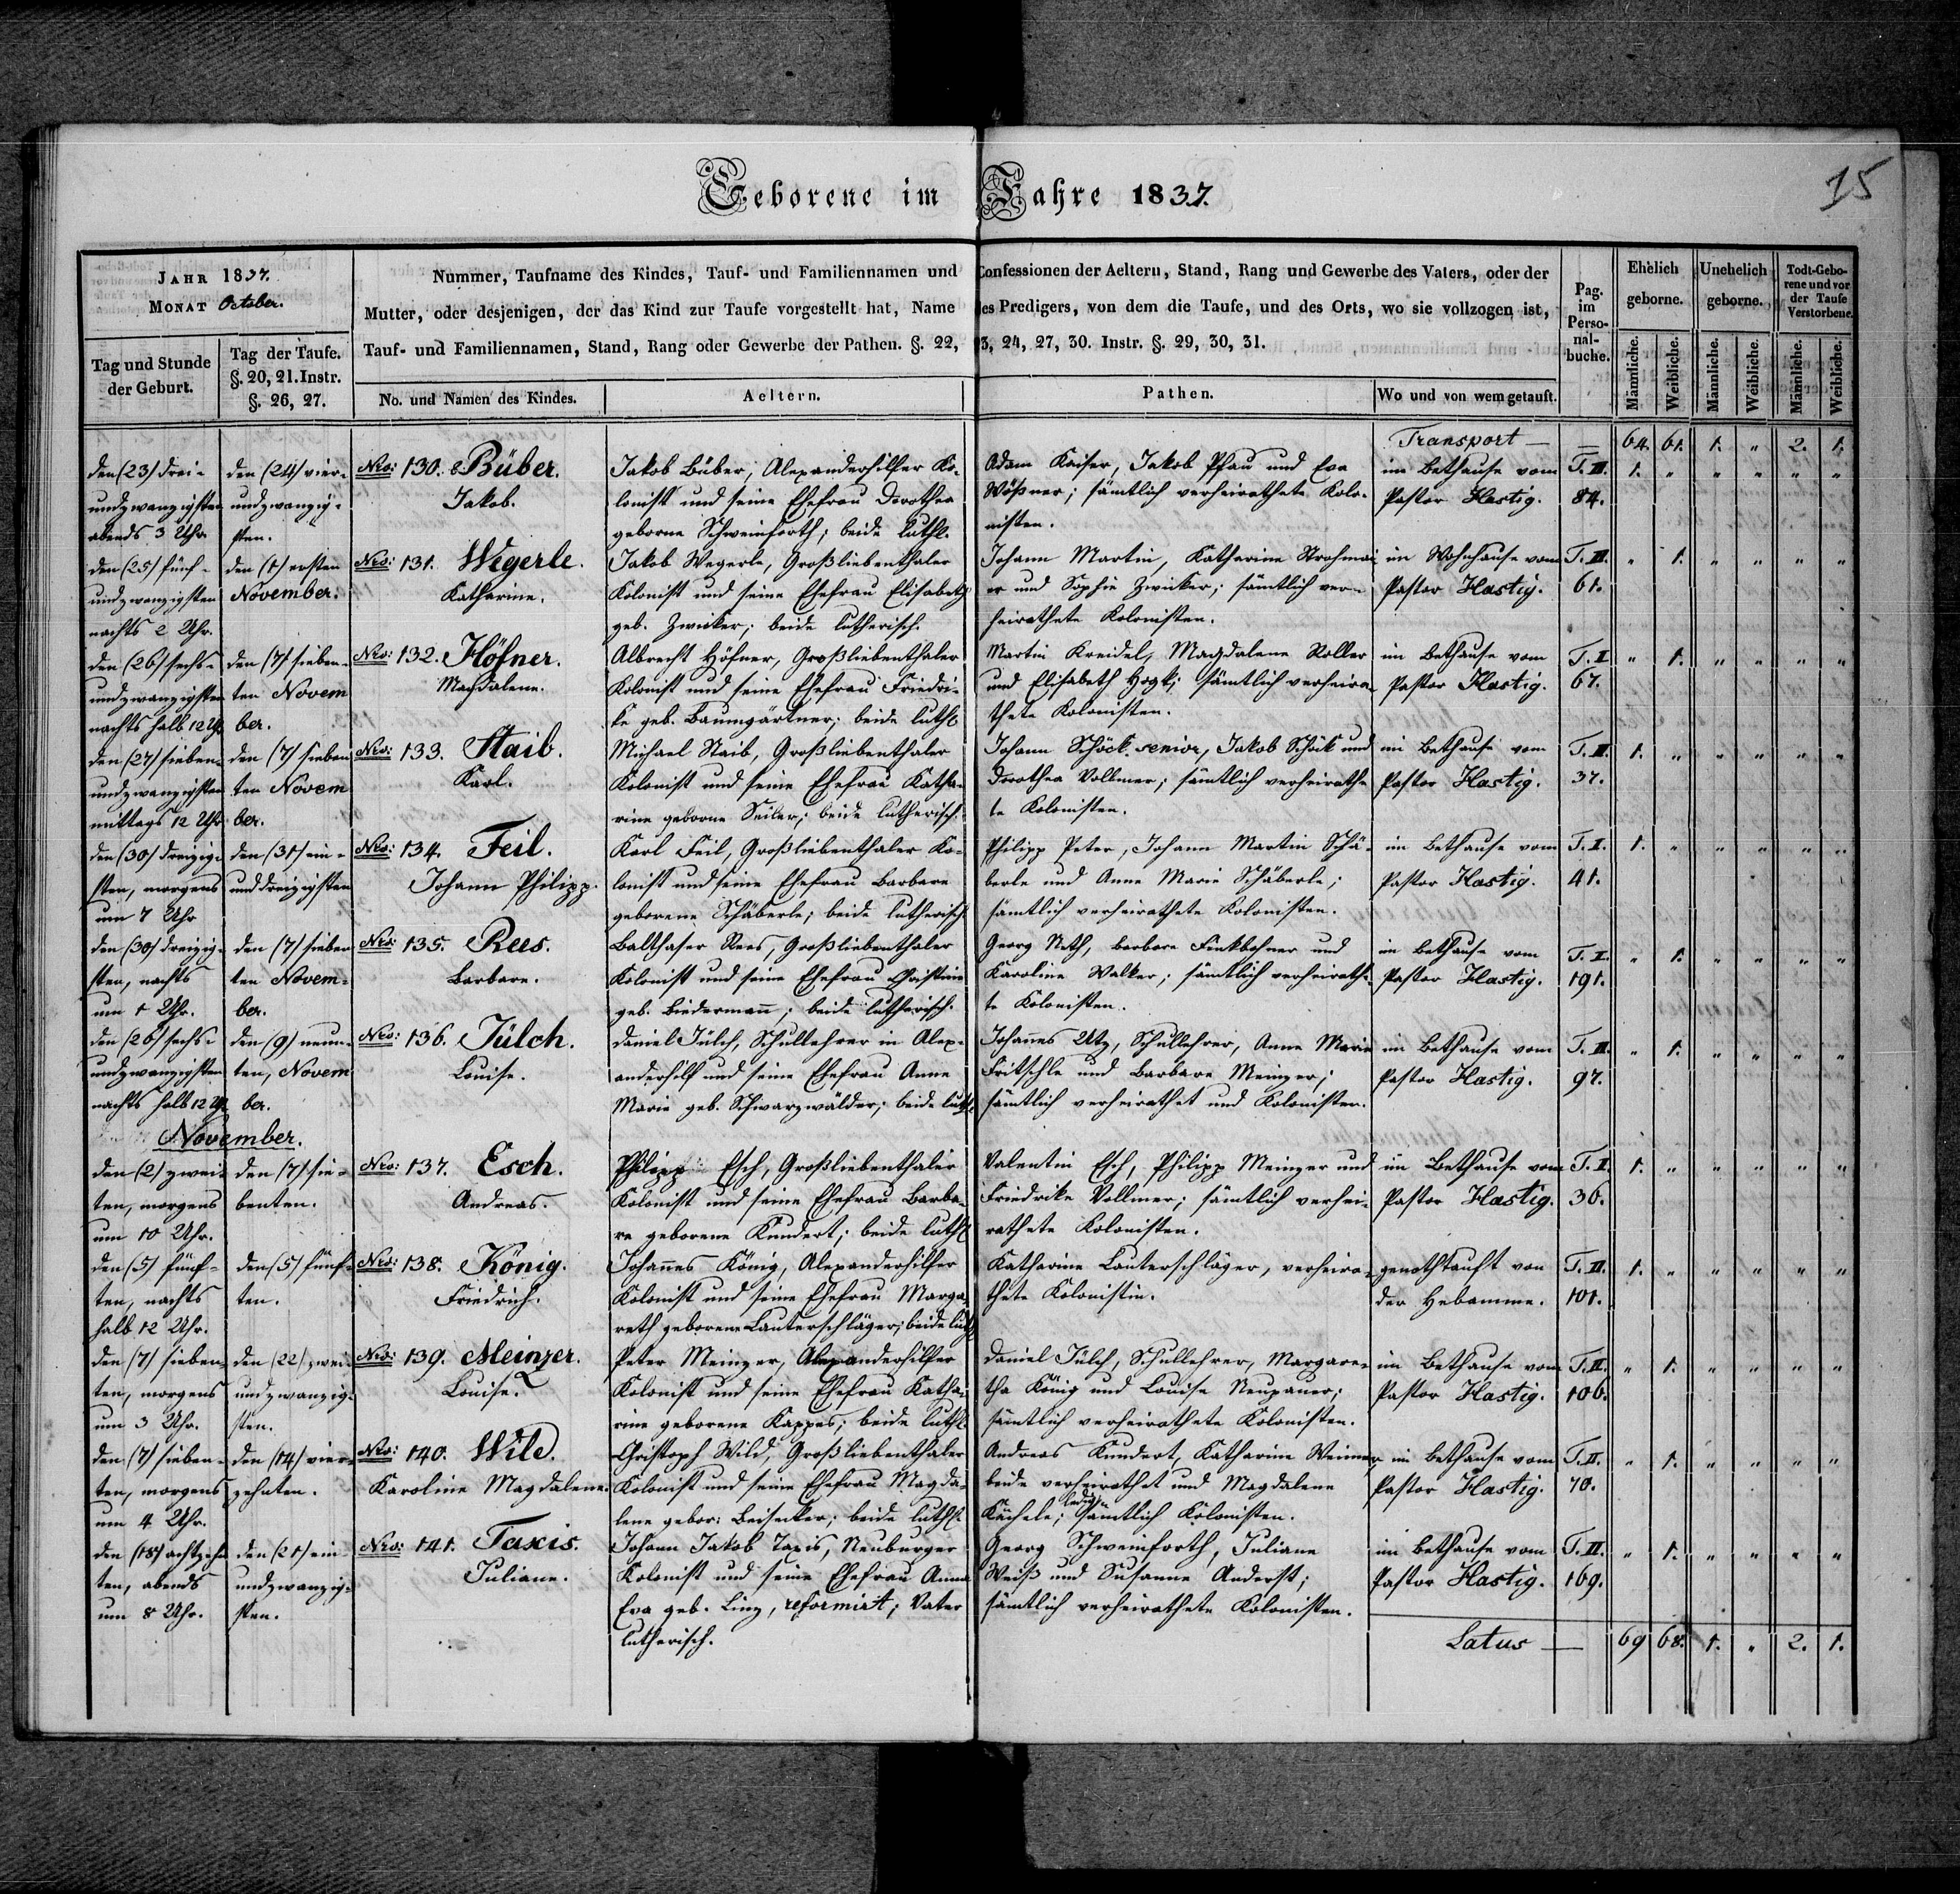 Geborene im Jahre 1837.
15
Jahr 1837.
Monat October.
Tag und Stunde der Geburt.
Tag der Taufe. §. 20, 21. Instr. §. 26, 27.
Nummer, Taufname des Kindes, Tauf- und Familiennamen und Confessionen der Aeltern, Stand, Rang und Gewerbe des Vaters, oder der
Mutter, oder desjenigen, der das Kind zur Taufe vorgestellt hat, Name des Predigers, von dem die Taufe, und des Orts, wo sie vollzogen ist,
Tauf- und Familiennamen, Stand, Rang oder Gewerbe der Pathen. §. 22, 23, 24, 27, 30. Instr. §. 29, 30, 31.
No. und Namen des Kindes.
Aeltern.
Pathen.
Wo und von wem getauft.
Pag. im Personal-buche.
Ehelich geborne.
Unehelich geborne.
Todt-Geborene und vor der Taufe Verstorbene.
Männliche. Weibliche. Männliche. Weibliche. Männliche. Weibliche.
Transport — — 64. 61. 1. " 2. 1.
den (23) drei-
undzwanzigsten
abends 3 Uhr.
den (24) vier-
undzwanzig-
sten.
Nro: 130. Büber.
Jakob.
Jakob Büber, Alexanderhilfer Ko-
lonist und seine Ehefrau Dorothea
geborne Schweinforth; beide luth.
Adam Kaiser, Jakob Pfau und Eva
Wößner; sämtlich verheirathete Kolo-
nisten.
im Bethause vom
Pastor Hastig.
T. III.
84.
1. " " " " "
den (25) fünf-
undzwanzigsten
nachts 2 Uhr.
den (1) ersten
November.
Nro: 131. Wegerle.
Katharine.
Jakob Wegerle, Großliebenthaler
Kolonist und seine Ehefrau Elisabeth
geb. Zwicker; beide lutherisch.
Johann Martin, Katharine Strohmai
er und Sophie Zwicker; sämtlich ver-
heirathete Kolonisten.
im Wohnhause vom
Pastor Hastig.
T. III.
61.
" 1. " " " "
den (26) sechs-
undzwanzigsten
nachts halb 12 Uhr
den (7) sieben-
ten Novem
ber.
Nro: 132. Höfner.
Magdalene.
Albrecht Höfner, Großliebenthaler
Kolonist und seine Ehefrau Friedri-
ke geb. Baumgärtner; beide luth.
Martin Kreidel, Magdalene Koller
und Elisabeth Hogk; sämtlich verheira-
thete Kolonisten.
im Bethause vom
Pastor Hastig.
T. I
67.
" 1. " " " "
den (27) sieben-
undzwanzigsten
mittags 12 Uhr
den (7) sieben
ten Novem
ber.
Nro: 133. Staib.
Karl.
Michael Staib, Großliebenthaler
Kolonist und seine Ehefrau Katha-
rine geborne Seiler; beide lutherisch.
Johann Schöck senior, Jakob Schök und
Dorothea Vollmer; sämtlich verheirathe
te Kolonisten.
im Bethause vom
Pastor Hastig.
T. II.
37.
1. " " " " "
den (30) dreizig-
sten, morgens
um 7 Uhr
den (31) ein-
unddreizigsten
Nro: 134. Feil.
Johann Philipp.
Karl Feil, Großliebenthaler Ko-
lonist und seine Ehefrau Barbare
geborene Schäberle; beide lutherisch
Philipp Peter, Johann Martin Schä-
berle und Anne Marie Schäberle;
sämtlich verheirathete Kolonisten.
im Bethause vom
Pastor Hastig.
T. I.
41.
1. " " " " "
den (30) dreizig-
sten, nachts
um 1 Uhr.
den (7) sieben
ten Novem-
ber.
Nro: 135. Rees.
Barbare.
Balthaser Rees, Großliebenthaler
Kolonist und seine Ehefrau Christine
geb. Biedermann; beide lutherisch.
Georg Neth, Barbare Finkbohner und
Karoline Walker; sämtlich verheirathe-
te Kolonisten.
im Bethause vom
Pastor Hastig.
T. I.
191.
" 1. " " " "
den (26) sechs-
undzwanzigsten
nachts halb 12 Uhr
den (9) neun-
ten, Novem
ber.
Nro: 136. Jülch.
Louise.
Daniel Jülch, Schullehrer in Alex-
anderhilf und seine Ehefrau Anne
Marie geb. Schwarzwälder; beide luth.
Johannes Utz, Schullehrer, Anne Marie
Fritschle und Barbare Meinzer;
sämtlich verheirathet und Kolonisten.
im Bethause vom
Pastor Hastig.
T. III.
97.
" 1. " " " "
November.
den (2) zwei-
ten, morgens
um 10 Uhr.
den (7) sie-
benten.
Nro: 137. Esch.
Andreas.
Philipp Esch, Großliebenthaler
Kolonist und seine Ehefrau Barba-
re geborene Kundert; beide luth.
Valentin Esch, Philipp Meinzer und
Friedrike Vollmer; sämtlich verhei-
rathete Kolonisten.
im Bethause vom
Pastor Hastig.
T. I.
36.
1. " " " " "
den (5) fünf-
ten, nachts
halb 12 Uhr.
den (5) fünf-
ten.
Nro: 138. König.
Friedrich.
Johannes König, Alexanderhilfer
Kolonist und seine Ehefrau Marga-
reth geborene Lauterschläger; beide luth
Katharine Lauterschläger, verheira-
thete Kolonistin.
genothtauft von
der Hebamme.
T. III.
101.
1. " " " " "
den (7) sieben-
ten, morgens
um 3 Uhr.
den (22) zwei-
undzwanzig-
sten.
Nro: 139. Meinzer.
Louise.
Peter Meinzer, Alexanderhilfer
Kolonist und seine Ehefrau Katha-
rine geborene Kappes; beide luth.
Daniel Jülch, Schullehrer, Margare-
tha König und Louise Neupauer;
sämtlich verheirathete Kolonisten.
im Bethause vom
Pastor Hastig.
T. III.
106.
" 1. " " " "
den (7) sieben-
ten, morgens
um 4 Uhr.
den (14) vier-
zehnten.
Nro: 140. Wild.
Karoline Magdalene.
Christoph Wild, Großliebenthaler
Kolonist und seine Ehefrau Magda-
lene gebor: Beisecker; beide luth.
Andreas Kundert, Katharine Weimer
beide verheirathet und Magdalene
Kächele; ledig; sämtlich Kolonisten.
im Bethause vom
Pastor Hastig.
T. II.
70.
" 1. " " " "
den (18) achtzehn
ten, abends
um 8 Uhr.
den (21) ein
undzwanzig-
sten.
Nro: 141. Taxis.
Juliane.
Johann Jakob Taxis, Neuburger
Kolonist und seine Ehefrau Anna
Eva geb. Linz, reformirt; Vater
lutherisch.
Georg Schweinforth, Juliane
Weiß und Susanne Anderst;
sämtlich verheirathete Kolonisten.
im Bethause vom
Pastor Hastig.
T. III.
169.
" 1. " " " "
Latus — 69 68. 1. " 2. 1.